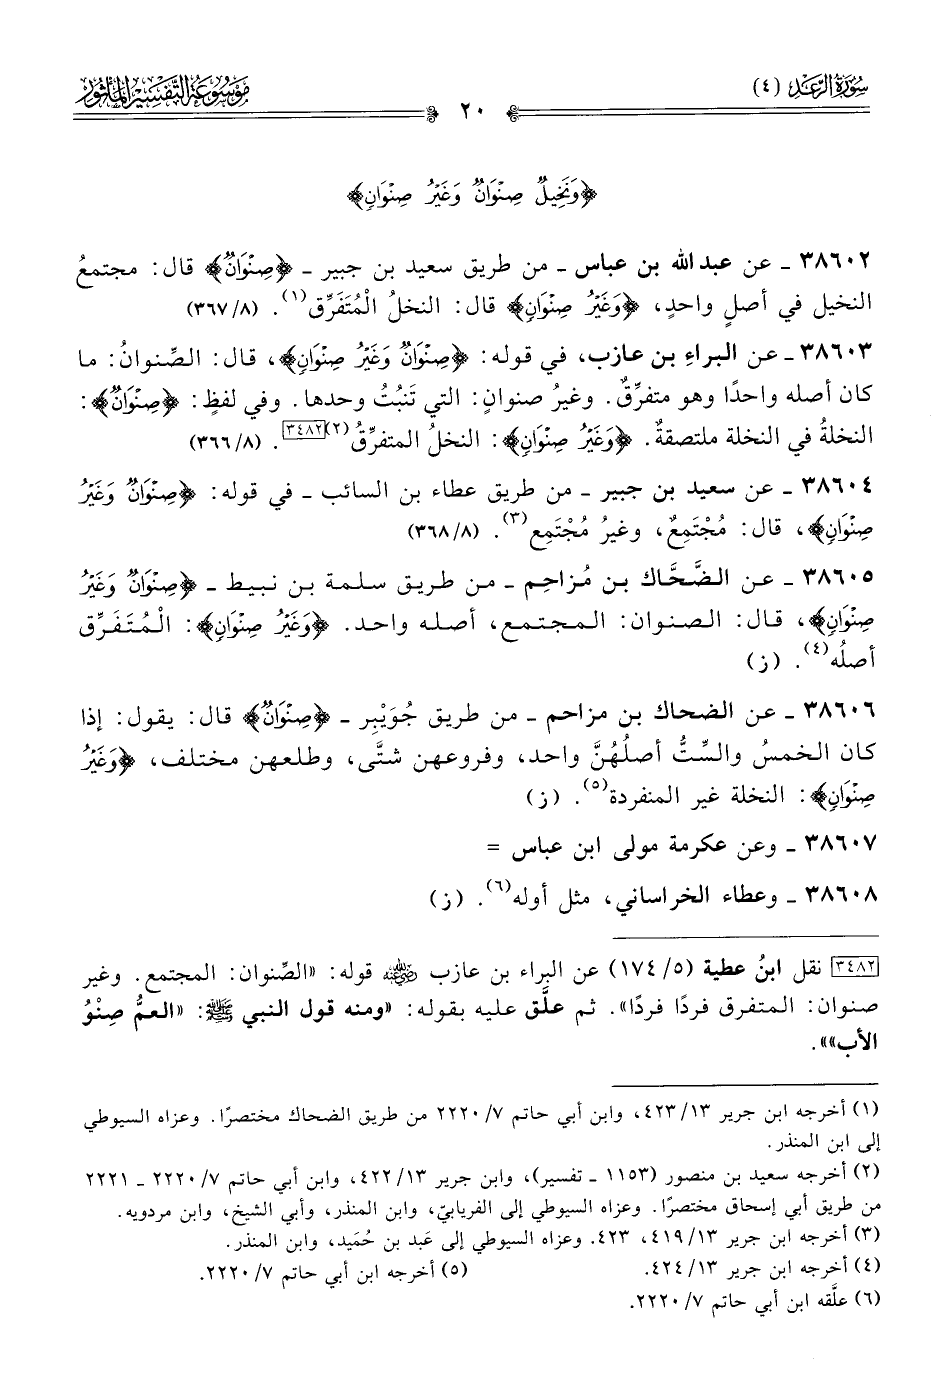 سُورَةُ الرَّعْدِ (٤)
٢٠
مَوْسُوعَةُ التَّفْسِيرِ المَأْثُورِ
﴿وَنَخِيلٌ صِنْوَانٌ وَغَيْرُ صِنْوَانٍ﴾
٣٨٦٠٢ ـ عن عبد الله بن عباس ـ من طريق سعيد بن جبير ـ ﴿صِنْوَانٌ﴾ قال: مجتمعُ
النخيل في أصلٍ واحدٍ، ﴿وَغَيْرُ صِنْوَانٍ﴾ قال: النخلُ الْمُتَفَرِّق(١). (٨/ ٣٦٧)
٣٨٦٠٣ ـ عن البراءِ بن عازب، في قوله: ﴿صِنْوَانٌ وَغَيْرُ صِنْوَانٍ﴾، قال: الصِّنوانُ: ما
كان أصله واحدًا وهو متفرِّقٌ. وغيرُ صنوانٍ: التي تَنبُتُ وحدها. وفي لفظٍ: ﴿صِنْوَانٌ﴾:
النخلةُ في النخلة ملتصقةٌ. ﴿وَغَيْرُ صِنْوَانٍ﴾: النخلُ المتفرِّقُ(٢)[٣٤٨٢]. (٨/ ٣٦٦)
٣٨٦٠٤ ـ عن سعيد بن جبير ـ من طريق عطاء بن السائب ـ في قوله: ﴿صِنْوَانٌ وَغَيْرُ
صِنْوَانٍ﴾، قال: مُجْتَمِعٌ، وغيرُ مُجْتَمِعٍ(٣). (٨/ ٣٦٨)
٣٨٦٠٥ ـ عن الضَّحَّاك بن مُزاحِم ـ من طريق سلمة بن نبيط ـ ﴿صِنْوَانٌ وَغَيْرُ
صِنْوَانٍ﴾، قال: الصنوان: المجتمع، أصله واحد. ﴿وَغَيْرُ صِنْوَانٍ﴾: الْمُتَفَرِّق
أصلُه(٤). (ز)
٣٨٦٠٦ ـ عن الضحاك بن مزاحم ـ من طريق جُوَيْبِر ـ ﴿صِنْوَانٌ﴾ قال: يقول: إذا
كان الخمسُ والسِّتُّ أصلُهُنَّ واحد، وفروعهن شتَّى، وطلعهن مختلف، ﴿وَغَيْرُ
صِنْوَانٍ﴾: النخلة غير المنفردة(٥). (ز)
٣٨٦٠٧ ـ وعن عكرمة مولى ابن عباس =
٣٨٦٠٨ ـ وعطاء الخراساني، مثل أوله(٦). (ز)
[٣٤٨٢] نقل ابنُ عطية (٥/ ١٧٤) عن البراء بن عازب رضي الله عنه قوله: «الصِّنوان: المجتمع. وغير
صنوان: المتفرق فردًا فردًا». ثم علَّق عليه بقوله: «ومنه قول النبي ﷺ: «العمُّ صِنْوُ
الأب»».
(١) أخرجه ابن جرير ١٣/ ٤٢٣، وابن أبي حاتم ٧/ ٢٢٢٠ من طريق الضحاك مختصرًا. وعزاه السيوطي
إلى ابن المنذر.
(٢) أخرجه سعيد بن منصور (١١٥٣ ـ تفسير)، وابن جرير ١٣/ ٤٢٢، وابن أبي حاتم ٧/ ٢٢٢٠ ـ ٢٢٢١
من طريق أبي إسحاق مختصرًا. وعزاه السيوطي إلى الفريابيّ، وابن المنذر، وأبي الشيخ، وابن مردويه.
(٣) أخرجه ابن جرير ١٣/ ٤١٩، ٤٢٣. وعزاه السيوطي إلى عَبد بن حُمَيد، وابن المنذر.
(٤) أخرجه ابن جرير ١٣/ ٤٢٤.
(٥) أخرجه ابن أبي حاتم ٧/ ٢٢٢٠.
(٦) علَّقه ابن أبي حاتم ٧/ ٢٢٢٠.